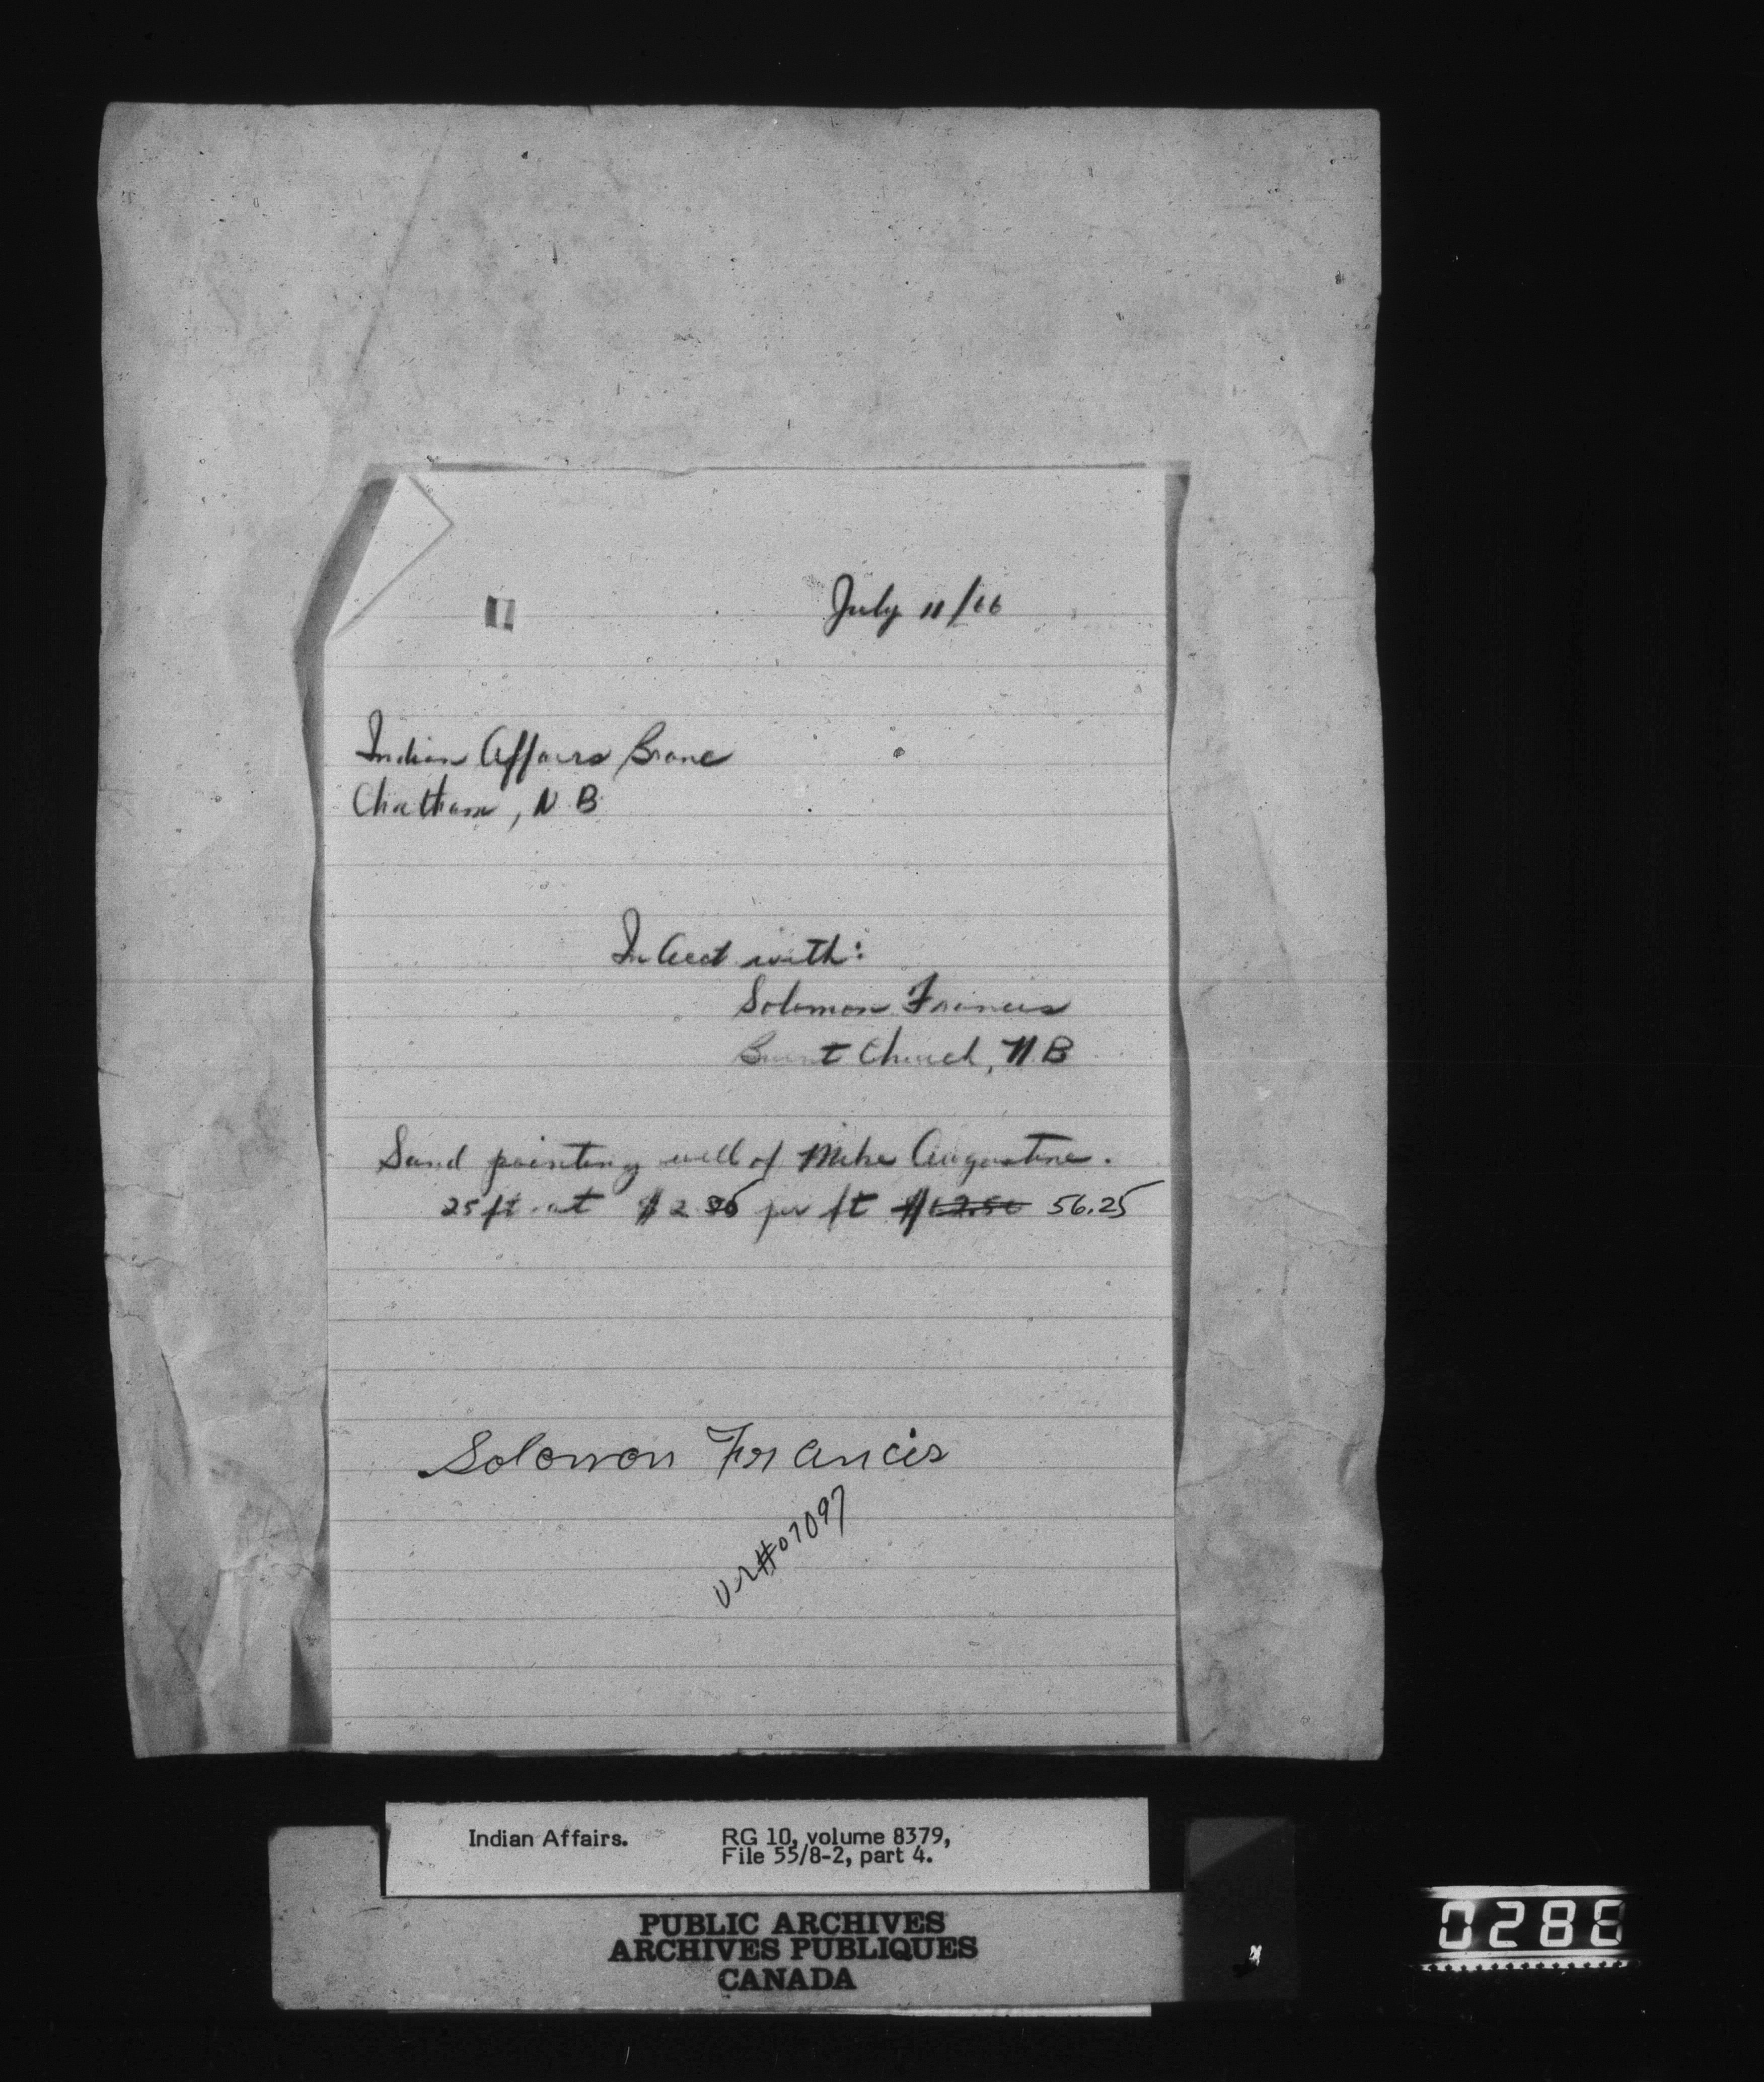 July 11/66
Indian Affairs Branc
Chatham, N B
In Acct with:
Solomon Francis
Burnt Church, N.B
Sand pointing well of Mike Augustine.
25 ft. at $2.25 per ft $62.50 56.25
Solomon Francis
Vr#07097
Indian Affairs. RG 10, volume 8379,
File 55/8-2, part 4.
PUBLIC ARCHIVES
ARCHIVES PUBLIQUES
CANADA